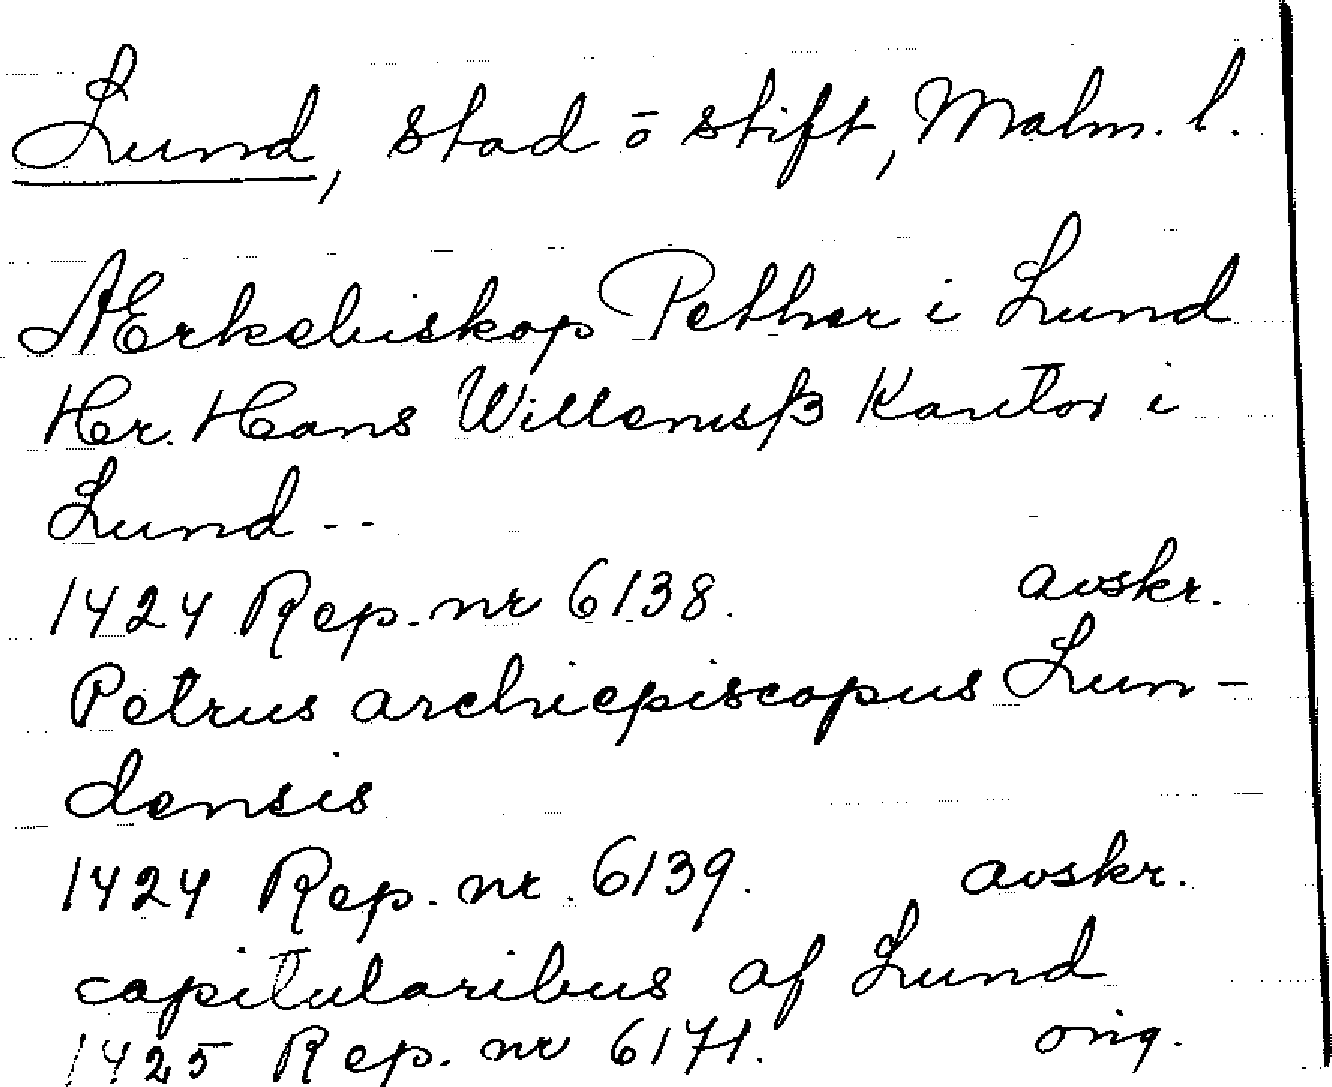 Lund, stad o stift, Malm. l.
AErkebiskop Pether i Lund
Her. Hans Willemsß Kantor i
Lund --
1424 Rep. nr 6138. avskr.
Petrus archiepiscopus Lun-
densis
1424 Rep. nr. 6139. avskr.
capitularibus af Lund
1425 Rep. nr 6171. orig.